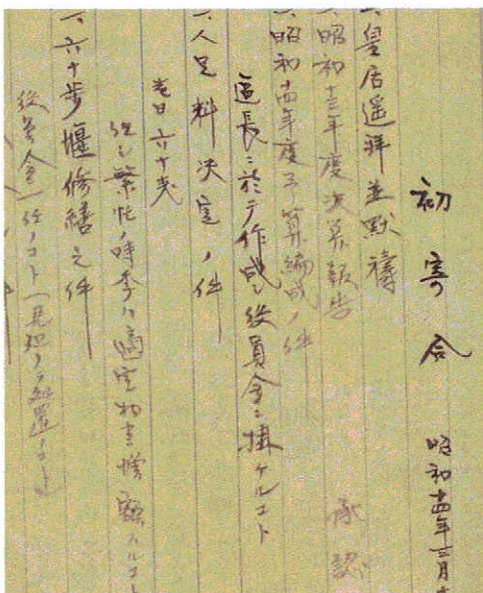 初寄合 昭和十四年三月十
一、皇居遥拝並黙禱
一、昭和十三年度決算報告 承認
一、昭和十四年度予算編成ノ件
區長ニ於テ作成シ役員会ニ掛ケルコト
一、人足料決定ノ件
壱日六十銭
但シ繁忙ノ時季ハ適宜増額スルコト
一、六十歩堰修繕之件
役員会一任ノコト